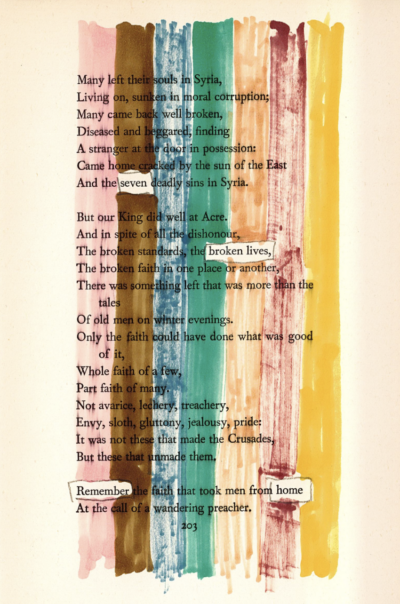 Many left their souls in Syria,
Living on, sunken in moral corruption;
Many came back well broken,
Diseased and beggared, finding
A stranger at the door in possession:
Came home cracked by the sun of the East
And the seven deadly sins in Syria.
But our King did well at Acre.
And in spite of all the dishonour,
The broken standards, the broken lives,
The broken faith in one place or another,
There was something left that was more than the
tales
Of old men on winter evenings.
Only the faith could have done what was good
of it,
Whole faith of a few,
Part faith of many.
Not avarice, lechery, treachery,
Envy, sloth, gluttony, jealousy, pride:
It was not these that made the Crusades,
But these that unmade them.
Remember the faith that took men from home
At the call of a wandering preacher.
203